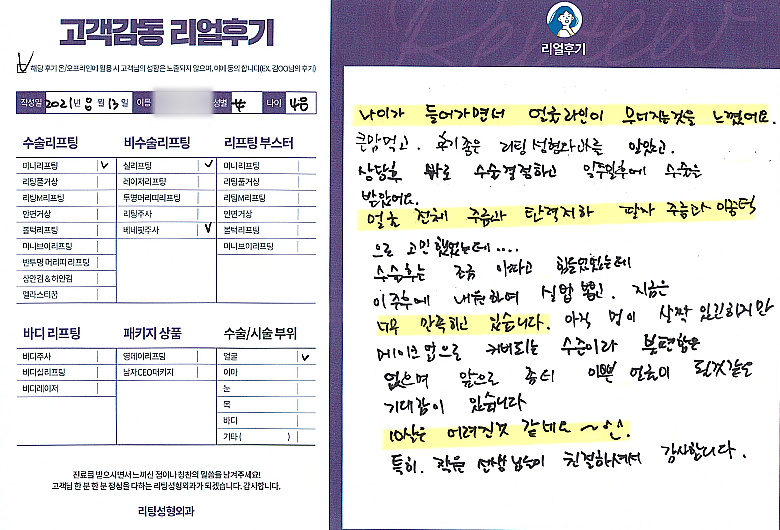 고객감동 리얼후기
해당 후기 온/오프라인에 활용 시 고객님의 성함은 노출되지 않으며, 이에 동의 합니다(EX. 김OO님의 후기)
작성일 2021년 8월 13일 이름 성별 나이 48
수술리프팅
미니리프팅
리팅풀거상
리팅M리프팅
안면거상
볼턱리프팅
미니브이리프팅
반투명 머리띠 리프팅
상안검 & 하안검
엘라스티꿈
비수술리프팅
실리프팅
레이저리프팅
투명머리띠리프팅
리팅주사
베네핏주사
리프팅 부스터
미니리프팅
리팅풀거상
리팅M리프팅
안면거상
볼턱리프팅
미니브이리프팅
바디 리프팅
바디주사
바디실리프팅
바디레이저
패키지 상품
영데이리프팅
남자CEO패키지
수술/시술 부위
얼굴
이마
눈
목
바디
기타 ( )
진료를 받으시면서 느끼신 점이나 칭찬의 말씀을 남겨주세요!
고객님 한 분 한 분 정성을 다하는 리팅성형외과가 되겠습니다. 감사합니다.
리팅성형외과
Review
리얼후기
나이가 들어가면서 얼굴라인이 무너지는것을 느꼈어요.
큰맘먹고. 후기좋은 리팅성형외과를 알았고.
상담후 바로 수술결정하고 일주일후에 수술을
받았어요.
얼굴 전체 주름과 탄력저하 팔자 주름과 이중턱
으로 고민했었는데....
수술후는 조금 아프고 힘들었었는데
이주후에 내원하여 실밥 뽑고. 지금은
너무 만족하고 있습니다. 아직 멍이 살짝 있긴하지만
메이크업으로 커버되는 수준이라 불편함은
없으며 앞으로 좀더 이쁜 얼굴이 될것같은
기대감이 있습니다
10살은 어려진것 같네요 ~^^.
특히. 작은 선생님들이 친절하셔서 감사합니다.